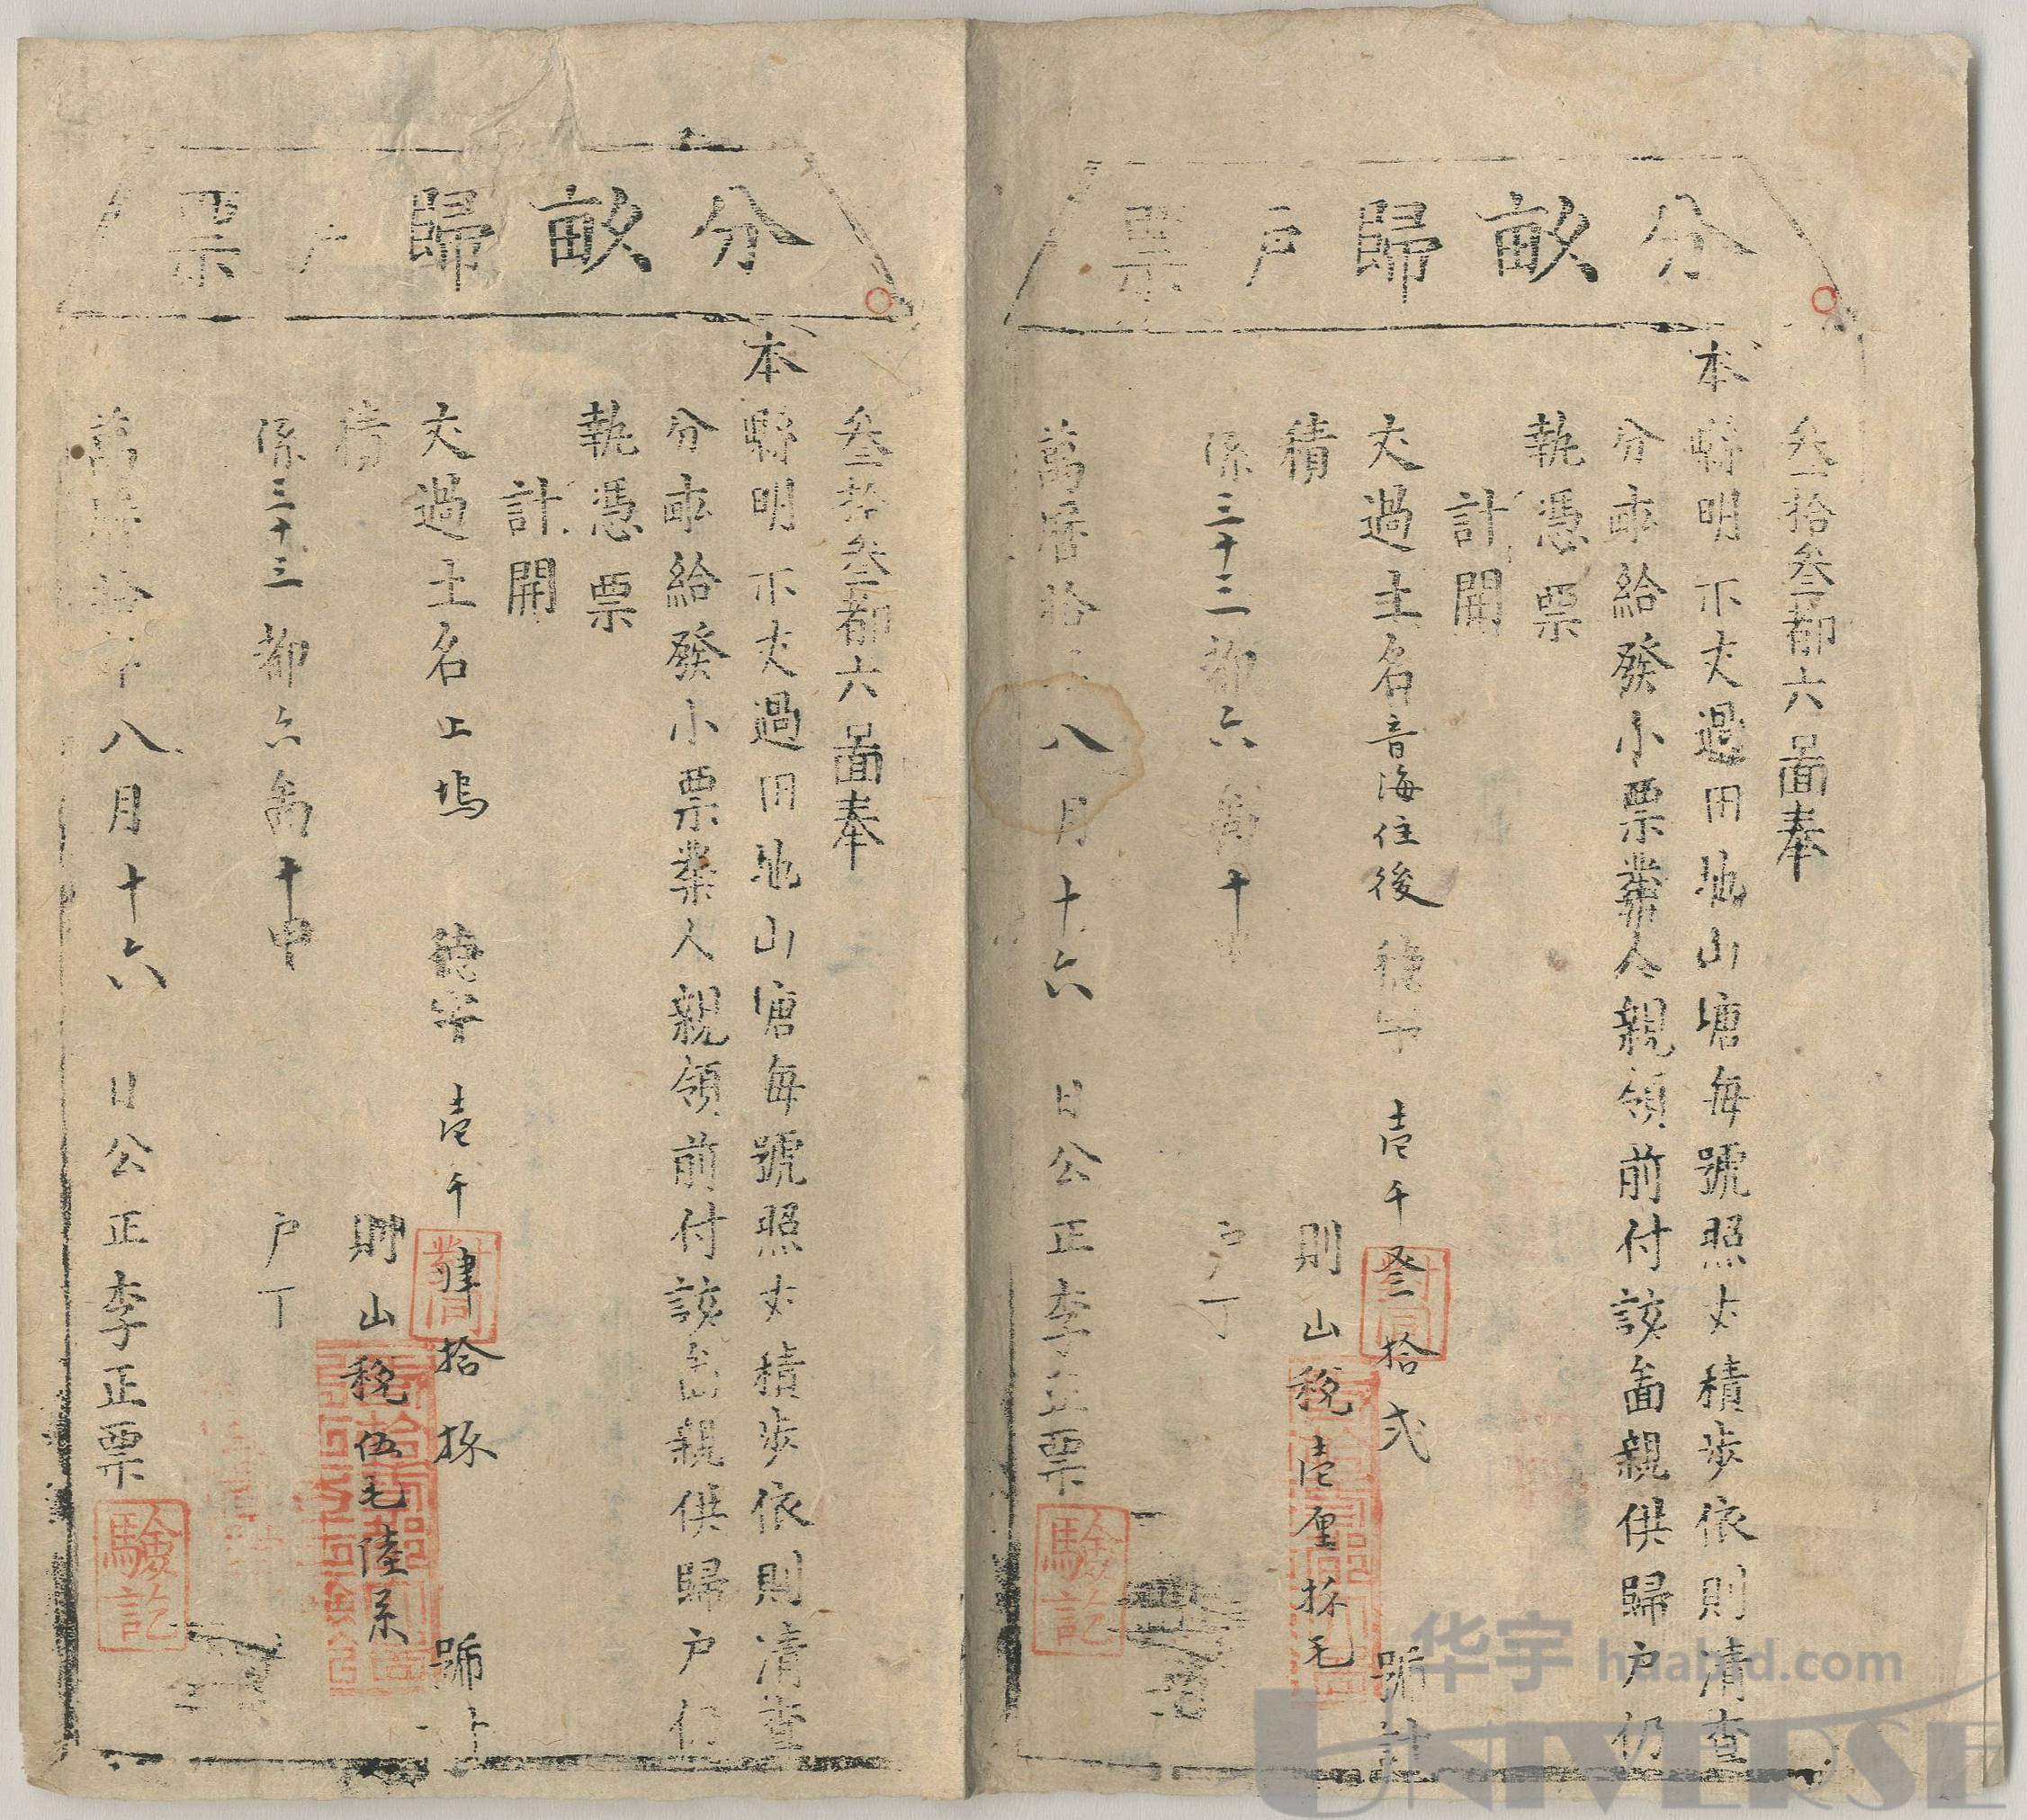 分畝歸戶票
叁拾叁都六啚奉
本縣明示丈過田地山塘每號照丈積步依則清查
分畝給發小票業人親領前付該啚親供歸户仍
執憑票
計開
丈過土名音海住後 德字 壹千叁拾弍 號計
積 則山稅壹厘捌毛
係三十三都六啚十 户丁
萬曆拾 八月十六 日公正李正票
驗訖
分畝歸 票
叁拾叁都六啚奉
本縣明示丈過田地山塘每號照丈積步依則清查
分畝給發小票業人親領前付該啚親供歸户仍
執憑票
計開
丈過土名上塢 德字 壹千肆拾捌 號
積 則山稅伍毛陸系
係三十三都六啚十甲 户丁
萬曆拾年八月十六 日公正李正票
驗訖
华宇 huabid.com
UNIVERSE